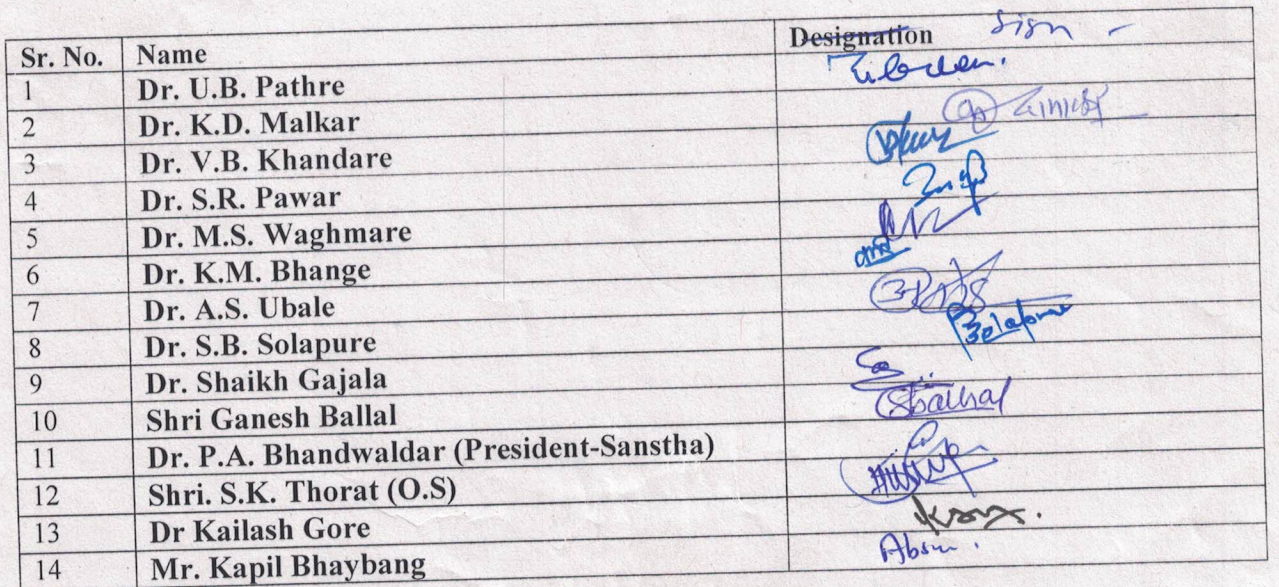 Sr. No. Name Designation Sign -
1 Dr. U.B. Pathre
2 Dr. K.D. Malkar
3 Dr. V.B. Khandare
4 Dr. S.R. Pawar
5 Dr. M.S. Waghmare
6 Dr. K.M. Bhange
7 Dr. A.S. Ubale
8 Dr. S.B. Solapure
9 Dr. Shaikh Gajala
10 Shri Ganesh Ballal
11 Dr. P.A. Bhandwaldar (President-Sanstha)
12 Shri. S.K. Thorat (O.S)
13 Dr Kailash Gore
14 Mr. Kapil Bhaybang Absm.